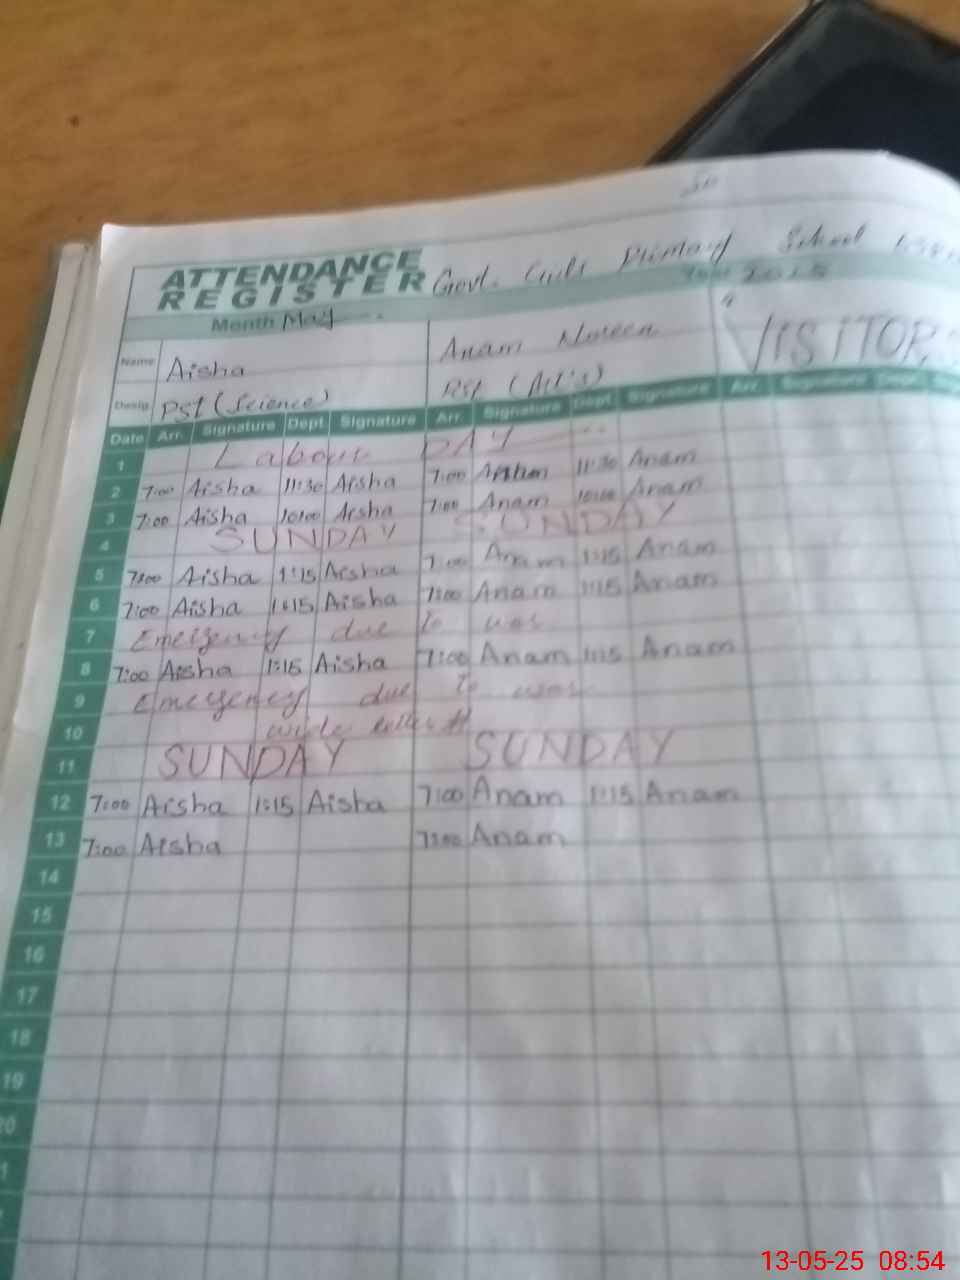 ATTENDANCE REGISTER Govt. Girls Primary School
Month May Year 2025
Name Aisha Anam Noreen VISITORS
Desig. Pst (Science) Pst (Art's)
Date Arr. Signature Dept. Signature Arr. Signature Dept. Signature Arr. Signature Dept.
1 Labour DAY
2 7:00 Aisha 11:30 Aisha 7:00 Anam 11:30 Anam
3 7:00 Aisha 10:00 Aisha 7:00 Anam 10:00 Anam
4 SUNDAY SUNDAY
5 7:00 Aisha 1:15 Aisha 7:00 Anam 1:15 Anam
6 7:00 Aisha 1:15 Aisha 7:00 Anam 1:15 Anam
7 Emergency due to war
8 7:00 Aisha 1:15 Aisha 7:00 Anam 1:15 Anam
9 Emergency due to war
10 wide letter #
11 SUNDAY SUNDAY
12 7:00 Aisha 1:15 Aisha 7:00 Anam 1:15 Anam
13 7:00 Aisha 7:00 Anam
14
15
16
17
18
19
20
13-05-25 08:54